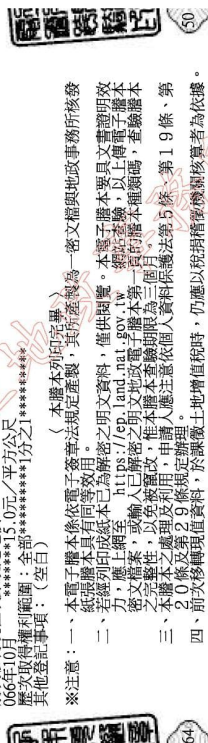 066年10月 ********15.0元／平方公尺
歷次取得權利範圍：全部**********1分之1*********
其他登記事項：（空白）
〈 本謄本列印完畢 〉
※注意：一、本電子謄本係依電子簽章法規定產製，其所產製為一密文檔與地政事務所核發
紙張謄本具有同等效用。
二、若經列印成紙本已為解密之明文資料，僅供閱覽。本電子謄本要具文書證明效
力，應上網至 https://ep.land.nat.gov.tw 網站查驗，以上傳電子謄本
密文檔案，或輸入已解密之明文地政電子謄本第一頁的謄本種類碼，查驗謄本
之完整性，以免被竄改，惟本謄本查驗期限為三個月。
三、本謄本之處理及利用，申請人應注意依個人資料保護法第5條、第19條、第
20條及第29條規定辦理。
四、前次移轉現值資料，於課徵土地增值稅時，仍應以稅捐稽徵機關核算者為依據。
50
64